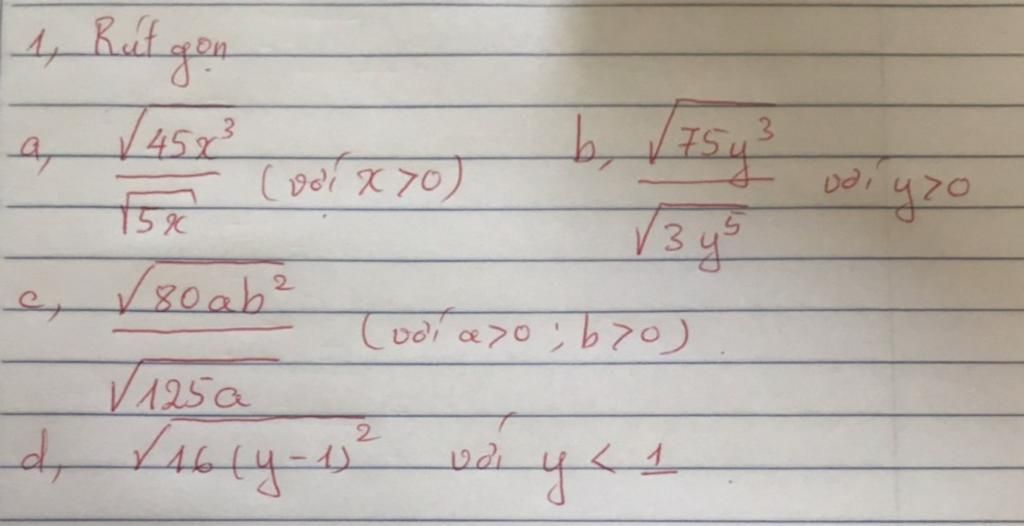 1, Rút gọn
a, √45x³ / √5x (với x > 0) b, √75y³ / √3y⁵ với y > 0
c, √80ab² / √125a (với a > 0 ; b > 0)
d, √16(y - 1)² với y < 1